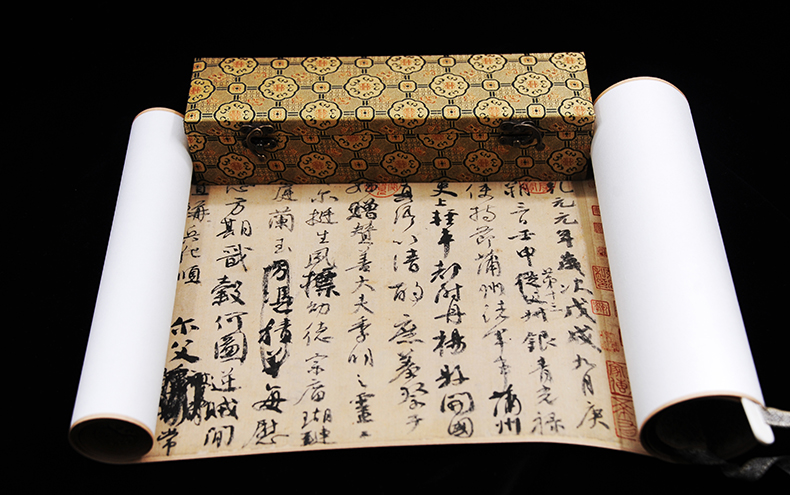 元元年歲次戊戌九月庚
朔三日壬申第十三從父叔銀青光祿
使持節蒲州諸軍事蒲州
史上輕車都尉丹楊縣開國
真卿以清酌庶羞祭于
姪贈贊善大夫季明之靈
爾挺生夙標幼德宗廟瑚璉
庭蘭玉方憑積善每慰
心方期戩穀何圖逆賊閒
稱兵犯順爾父常